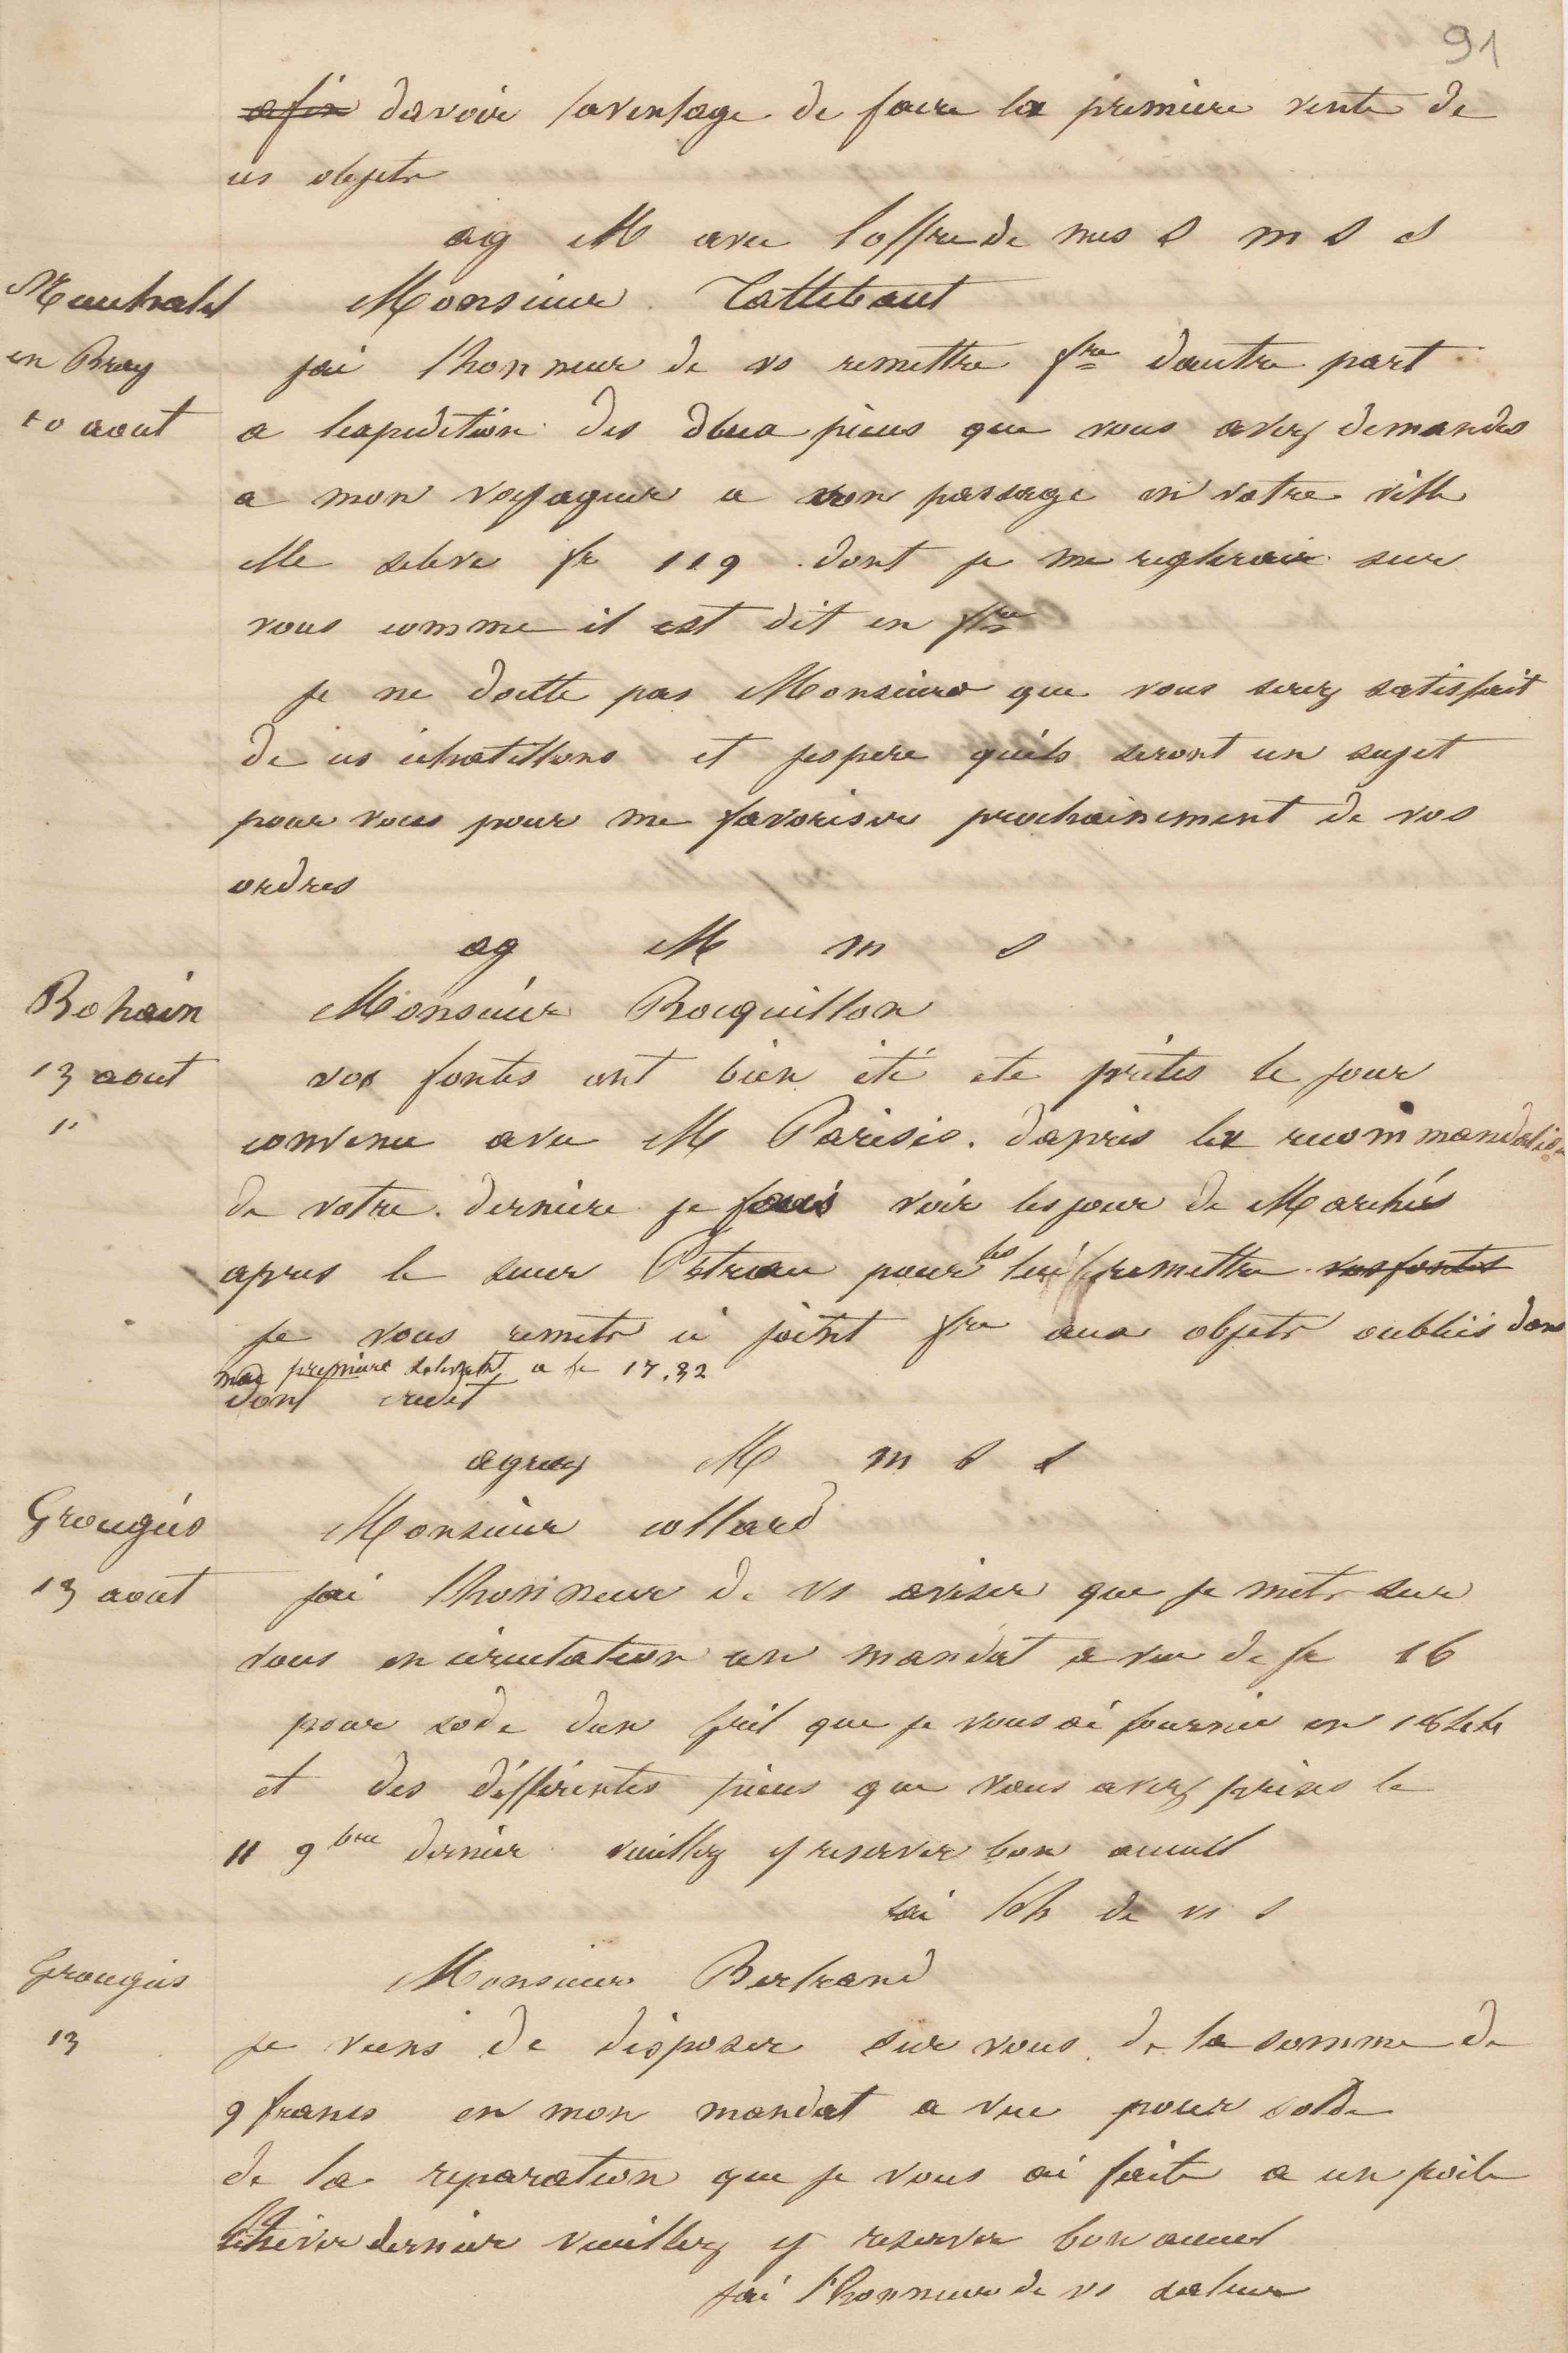 91
afin davoir lavantage de faire la premiere vente de
ces objets
ag M avec loffre de mes s m s s
Monsieur Tattebaut
en Bray
jai lhonneur de vs remettre fre dautre part
10 aout
a lexpedition des deux pieces que vous avez demandes
a mon voyageur a son passage en votre ville
elle seleve fr 119 dont je me reglerais sur
vous comme il est dit en fre
je ne doutte pas Monsieur que vous serez satisfait
de ces echatillons et jespere quils seront un sujet
pour vous pour me favoriser prochainement de vos
ordres
ag M m s
Bohain
Monsieur Bocquillon
13 aout
vos fontes ont bien été ete prêtes le jour
"
convenu avec M Parisis. dapres la recommandation
de votre derniere je fais voir les jour de Marchés
apres le sieur Pétreau pour les lui remettre vos fontes
je vous remets ci joint fre aux objets oubliés dans
ma premiere selevant a fr 17.32
dont credit
agreez M m s s
Grougis
Monsieur collard
13 aout
jai lhonneur de vs aviser que je mets sur
vous en circulation un mandat a vue de fr 16
pour sode dun gril que je vous ai fournie en 1844
et des différentes pieces que vous avez prises le
11 9bre dernier veuillez y reserver bon acceuil
jai lh de vs s
Grougis
Monsieur Bertrand
13
je viens de disposer sur vous de la somme de
9 francs en mon mandat a vue pour solde
de la reparation que je vous ai faite a un poile
lhiver dernier veuillez y reserver bon acceuil
jai lhonneur de vs saluer